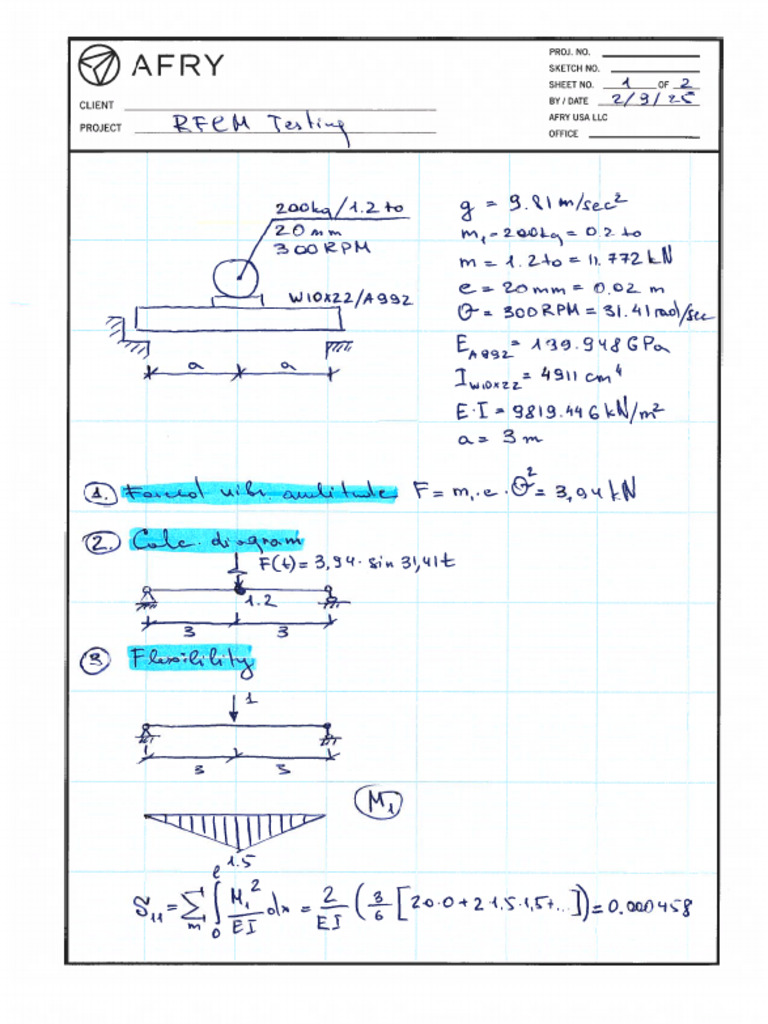 AFRY
PROJ. NO.
SKETCH NO.
SHEET NO. 1 OF 2
BY / DATE 2/9/25
AFRY USA LLC
OFFICE
CLIENT
PROJECT RFEM Testing
200kg/1.2 to
20 mm
300 RPM
W10x22/A992
a a
g = 9.81 m/sec²
m₁ = 200kg = 0.2 to
m = 1.2 to = 11.772 kN
e = 20mm = 0.02 m
θ = 300RPM = 31.41 rad/sec
E A992 = 199.948 GPa
I W10x22 = 4911 cm⁴
E·I = 9819.446 kN/m²
a = 3 m
1. Forced vibr. amlitude F = m₁·e·θ² = 3,94 kN
2. Calc. diagram
F(t) = 3,94· sin 31,41t
1.2
3 3
3 Flexibility
1
3 3
M₁
1.5
δ₁₁ = Σm ∫₀ˡ M₁²/EI dx = 2/EI (3/6 [2·0·0+2·1.5·1,5+...]) = 0.000458